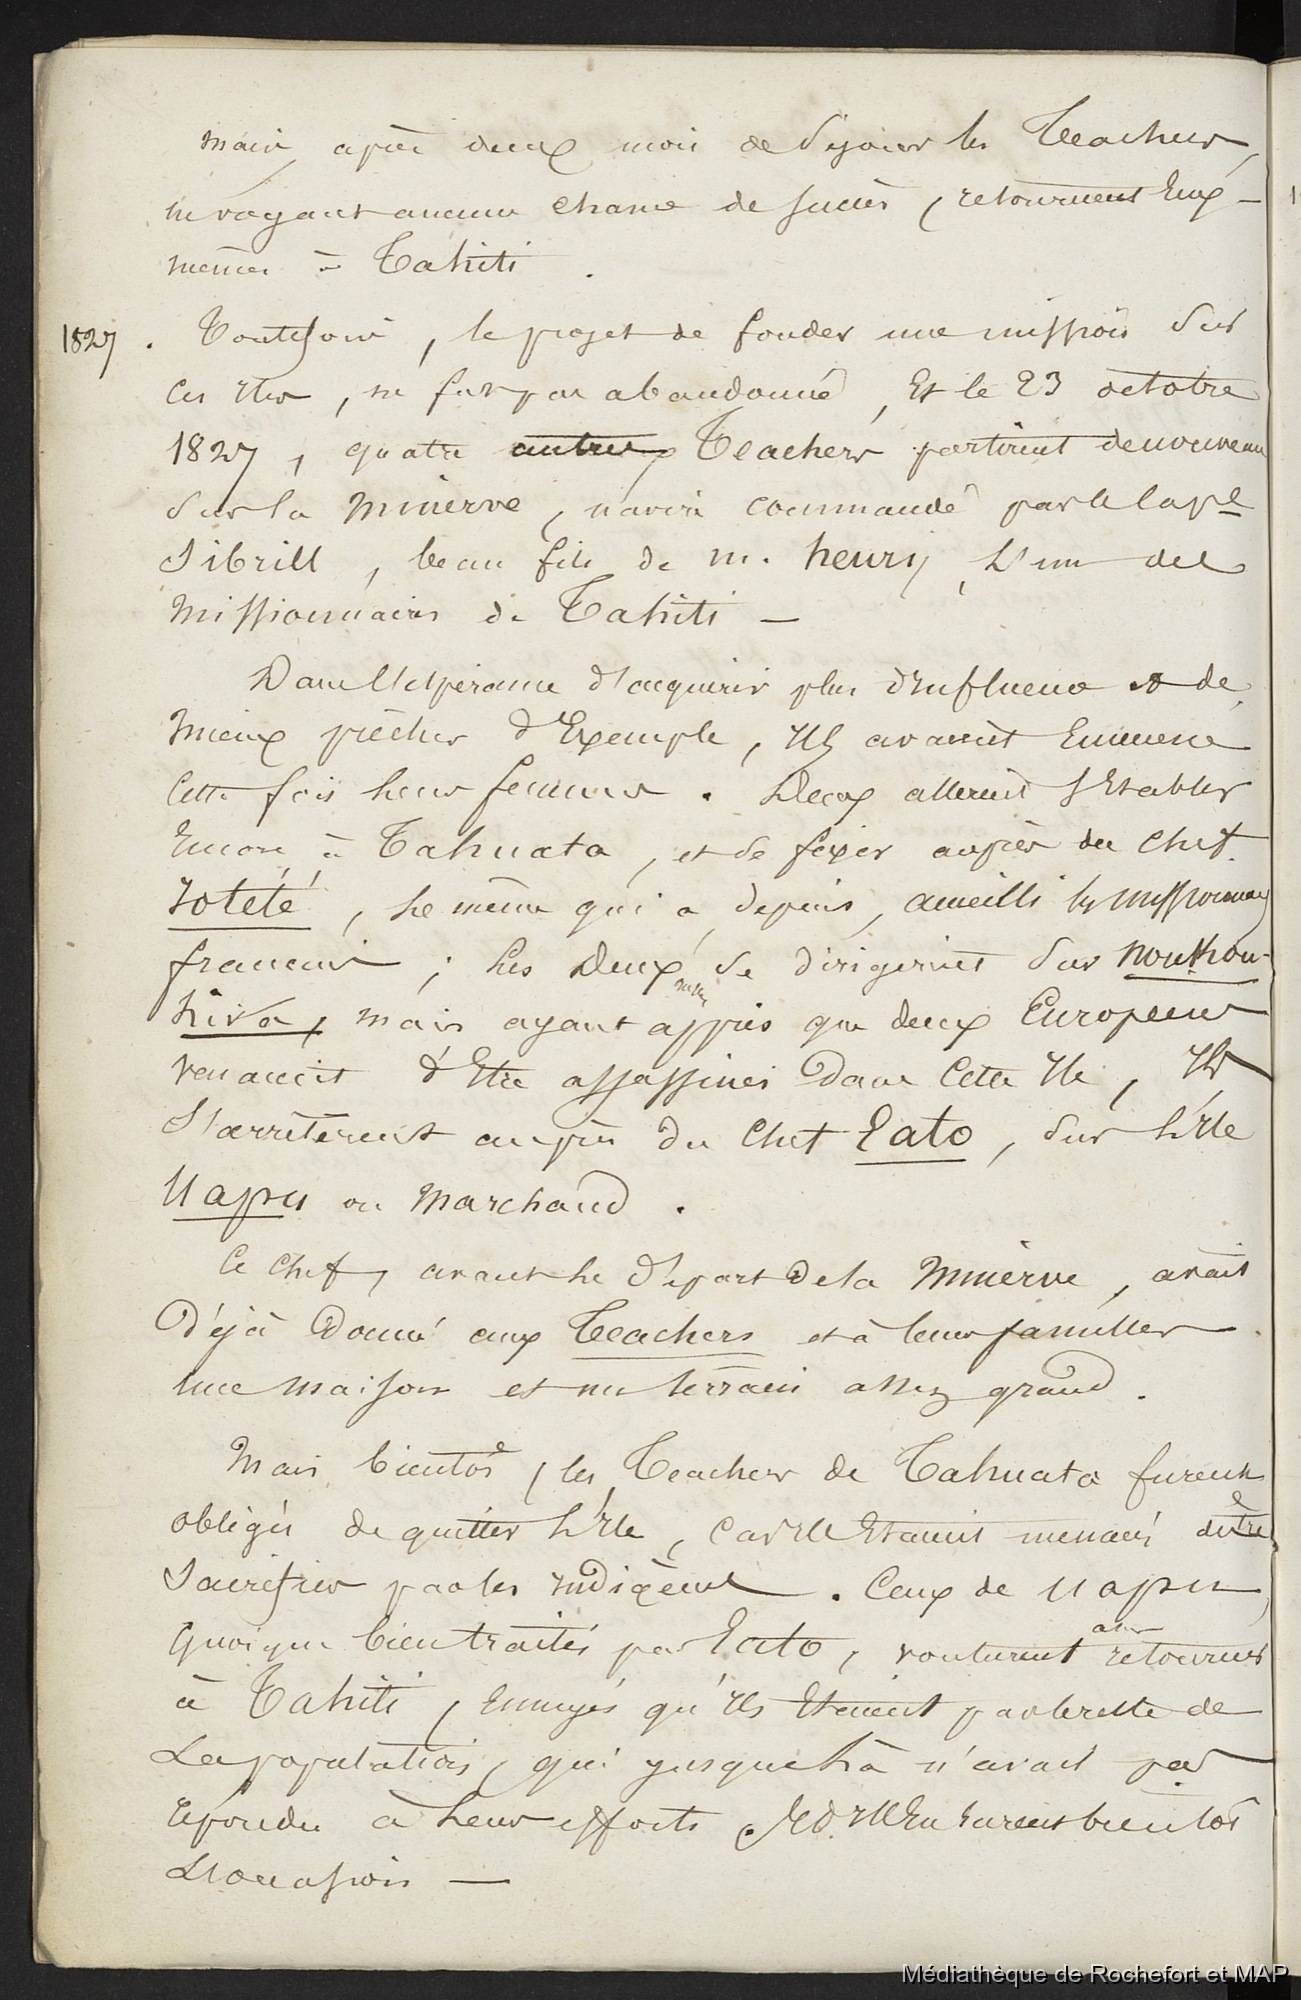 mais, après deux mois de séjour les Teachers,
ne voyant aucune chance de succès, retournent Eux-
mêmes à Tahiti.
1827. Toutefois, le projet de fonder une mission sur
ces Iles, ne fut pas abandonné, Et le 23 octobre
1827, quatre autres Teachers partirent de nouveau
sur la Minerve, navire commandé par le Cape
Sibrill, beau fils de m. henry, L'un des
Missionnaires de Tahiti —
Dans l'espérance d'acquérir plus d'Influence et de
Mieux prêcher d'Exemple, Ils avaient Emmené
Cette fois leurs femmes. Deux allèrent s'Etablir
Encore à Tahuata, et se fixer auprès du Chef
Iotété, Le même qui a, depuis, accueilli les missionnaires
francais ; Les Deux autres se dirigerent sur Noukou-
hiva, mais ayant appris que deux Européens
venaient d'Etre assassinés Dans Cette Ile, Ils
S'arrêtèrent auprès du Chef Eato, sur L'Ile
Uapu ou Marchand.
Ce Chef, avant le départ de la Minerve, avait
Déjà Donné aux Teachers et à leurs familles
une Maison et un terrain assez grand.
Mais bientôt, les Teachers de Tahuata furent
obligés de quitter L'Ile, Car Ils Etaient menacés d'être
Sacrifiés par les Indigènes. Ceux de Uapu,
Quoique bien traités par Eato, voulurent retourner
à Tahiti, Ennuyés qu'Ils Etaient par le reste de
La population, qui jusque là n'avait pas
répondu à Leurs efforts. Et Ils En Eurent bientôt
L'occasion —
Médiathèque de Rochefort et MAP